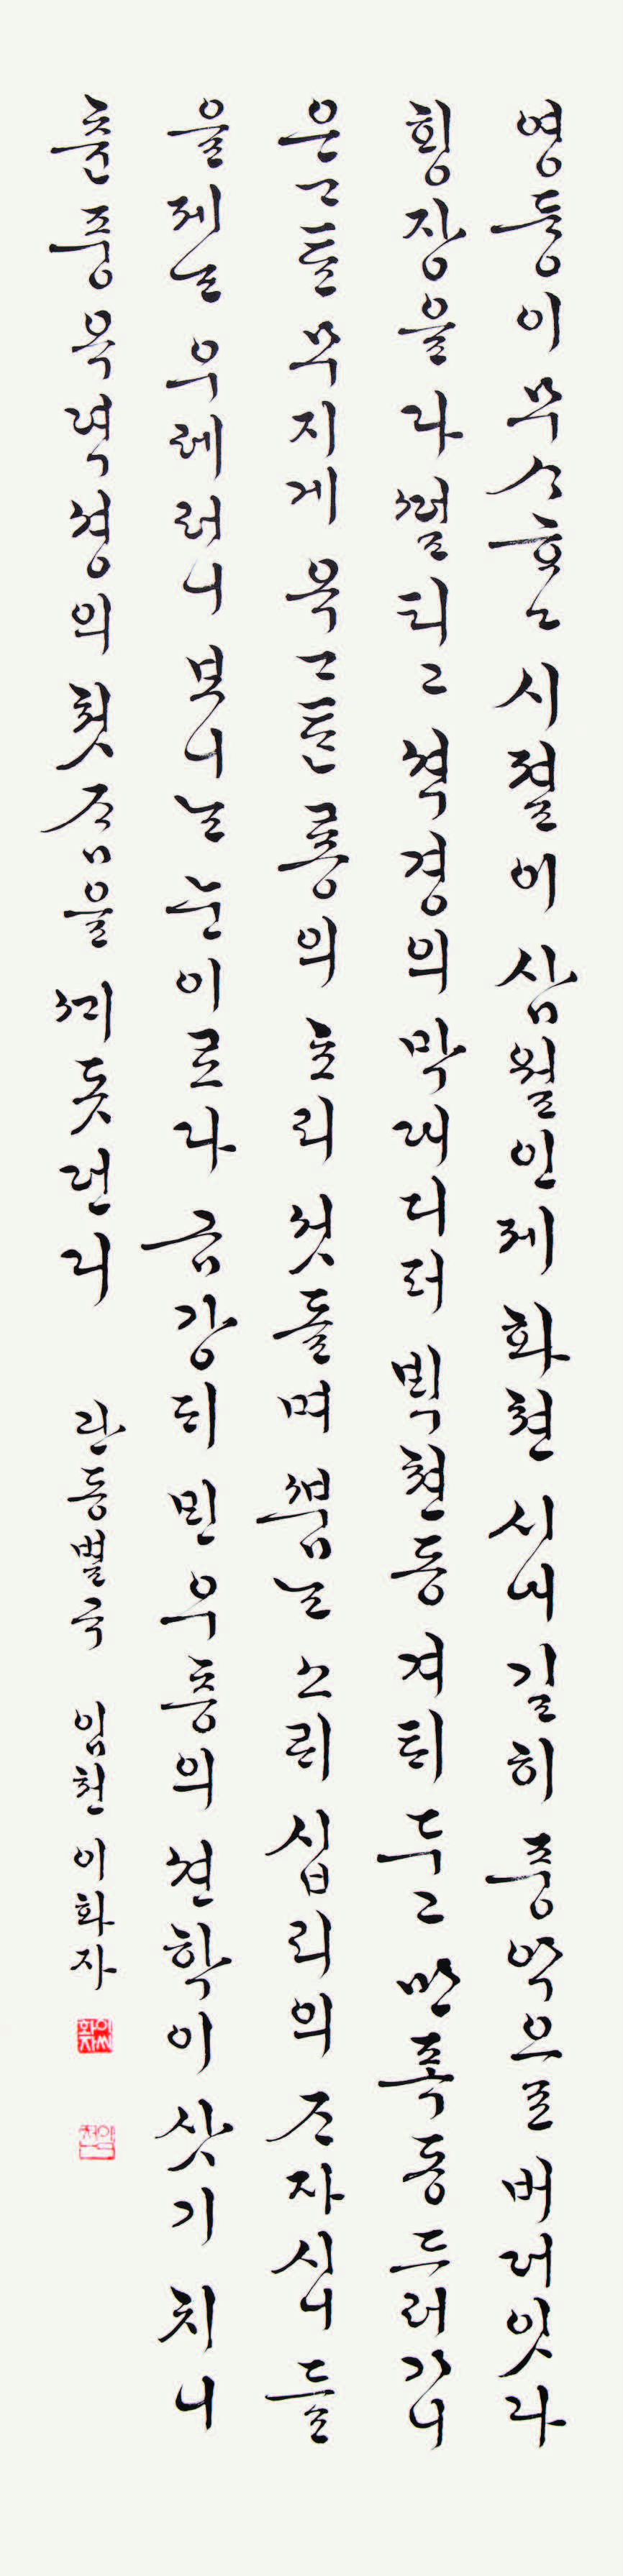 영듕이 무ᄉᆞᄒᆞ고 시졀이 삼월인제 화쳔 시내 길히 풍악으로 버더잇다
ᄒᆡᆼ장을 다 ᄯᅥᆯ티고 셕경의 막대 디퍼 ᄇᆡᆨ쳔동 겨ᄐᆡ 두고 만폭동 드러가니
은ᄀᆞᄐᆞᆫ 무지게 옥ᄀᆞᄐᆞᆫ 룡의 초리 섯돌며 ᄲᅮᆷᄂᆞᆫ 소ᄅᆡ 십리의 ᄌᆞ자시니 들
을제ᄂᆞᆫ 우레러니 보니ᄂᆞᆫ 눈이로다 금강ᄃᆡ ᄆᆡᆫ 우층의 션학이 삿기 치니
츈풍 옥뎍셩의 첫ᄌᆞᆷ을 ᄭᆡ돗던디 관동별곡 임천 이화자